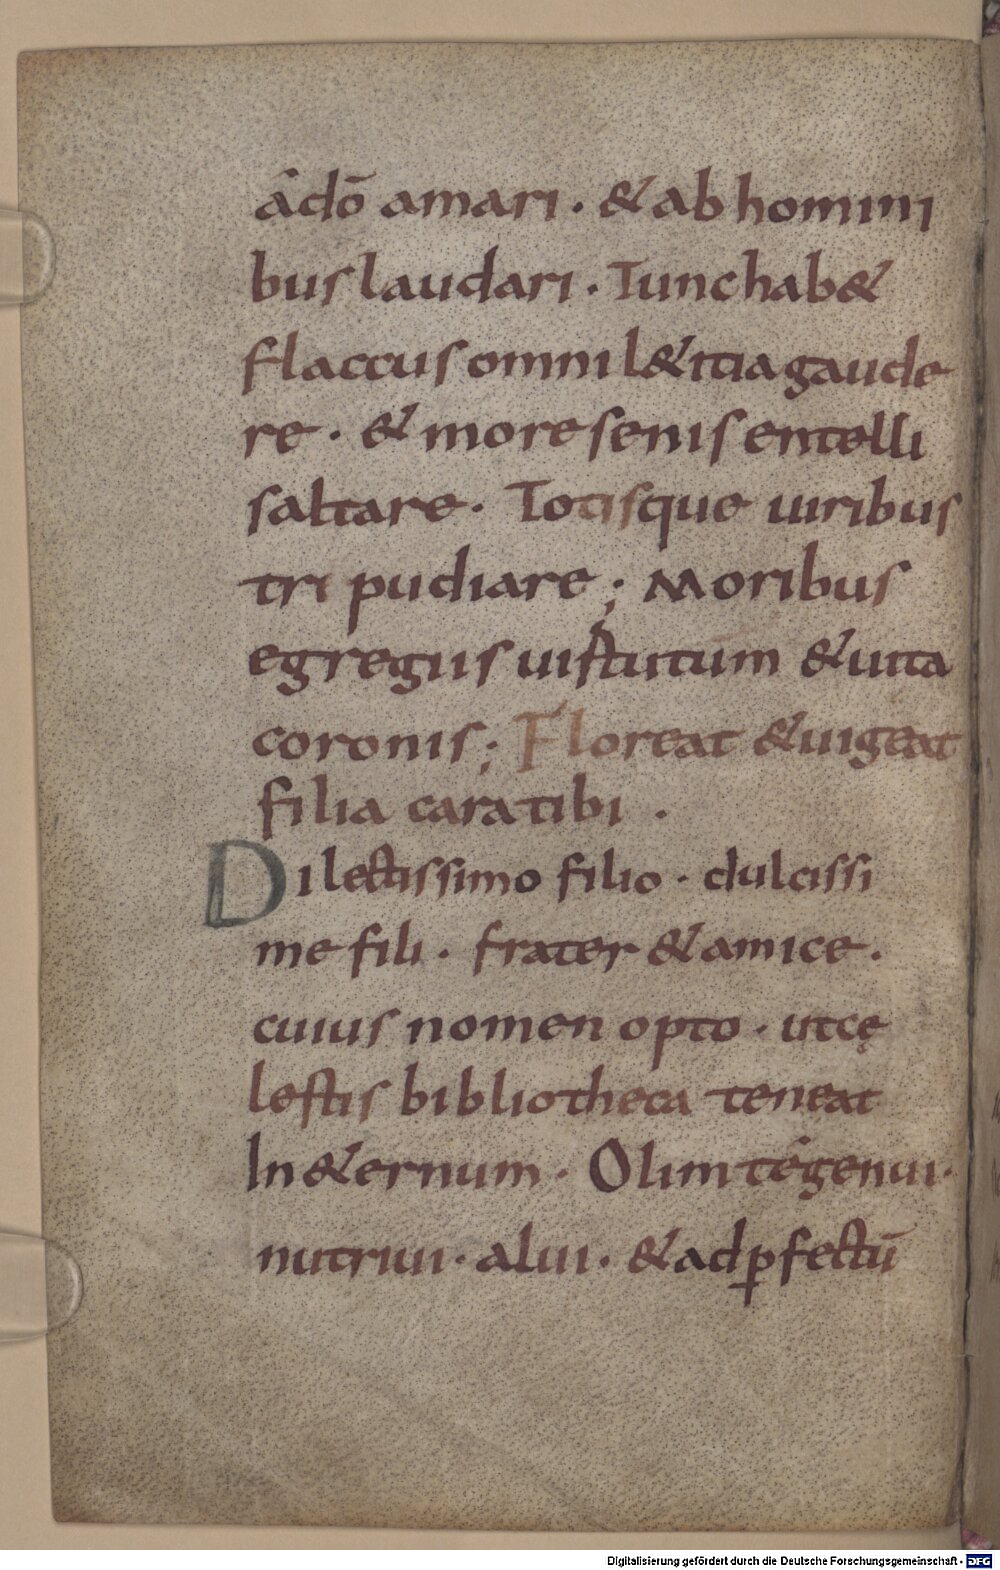 âdō amari · & ab homini
bus laudari · Tunc hab&
flaccus omni l&itia gaude
re · & more senis entelli
saltare · Totisque uiribus
tripudiare ; Moribus
egregiis uirtutum & uita
coronis ; Floreat & uigeat
filia cara tibi .
Dilectissimo filio · dulcissi
me fili · frater & amice .
cuius nomen opto · ut cę
lestis bibliotheca teneat
In &ernum · Olim té genui ·
nutriui · alui · & ad pfectū
Digitalisierung gefördert durch die Deutsche Forschungsgemeinschaft - DFG